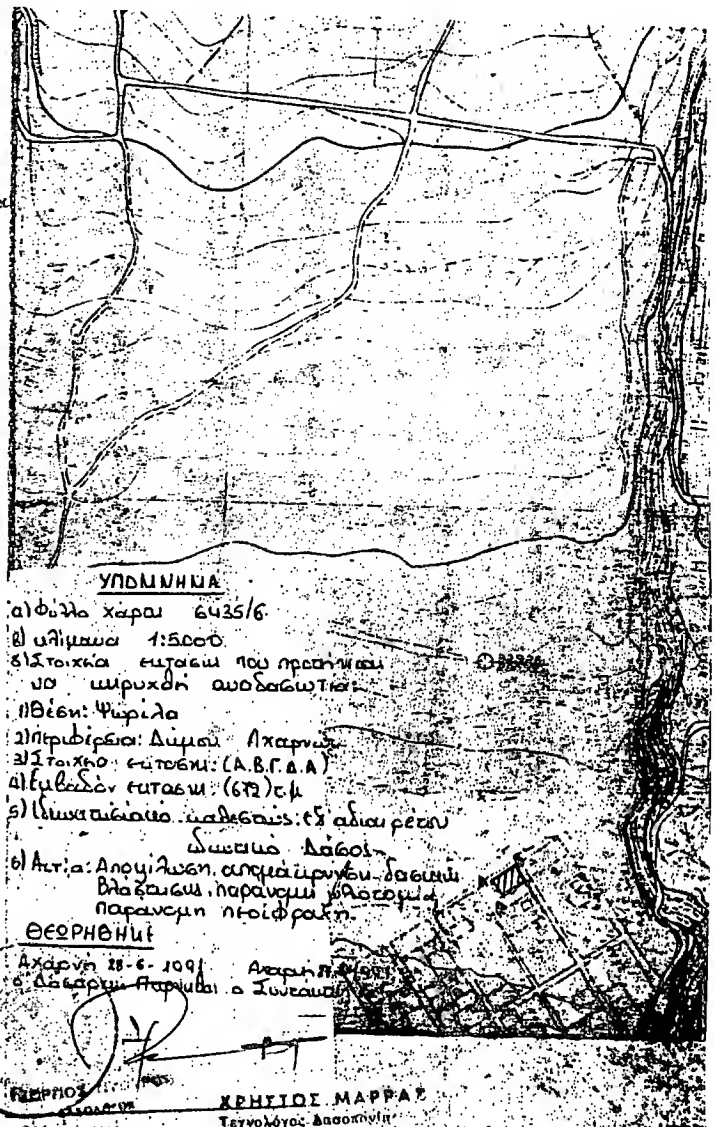 ΥΠΟΜΝΗΜΑ
α) Φύλλο χάρτου 6435/6
β) κλίμακα 1:5000
Στοιχεία εκτάσεως που προτείνεται
να κηρυχθή αναδασωτέα:
1) Θέση: Ψωρίλα
2) Περιφέρεια: Δήμου Αχαρνών
3) Στοιχεία εκτάσεως: (Α.Β.Γ.Δ.Α)
4) Εμβαδόν εκτάσεως: (672) τ.μ
5) Ιδιοκτησιακό καθεστώς: εξ αδιαιρέτου
Ιδιωτικό Δάσος
6) Αιτία: Αποψίλωση, απομάκρυνση δασικής
βλαστήσεως, παράνομη υλοτομία,
παράνομη περίφραξη.
ΘΕΩΡΗΘΗΚΕ
Αχαρνή 28-6-1991
ο Δασάρχης Πάρνηθας ο Συντάκτης
ΧΡΗΣΤΟΣ ΜΑΡΡΑΣ
Τεχνολόγος Δασοπονίας